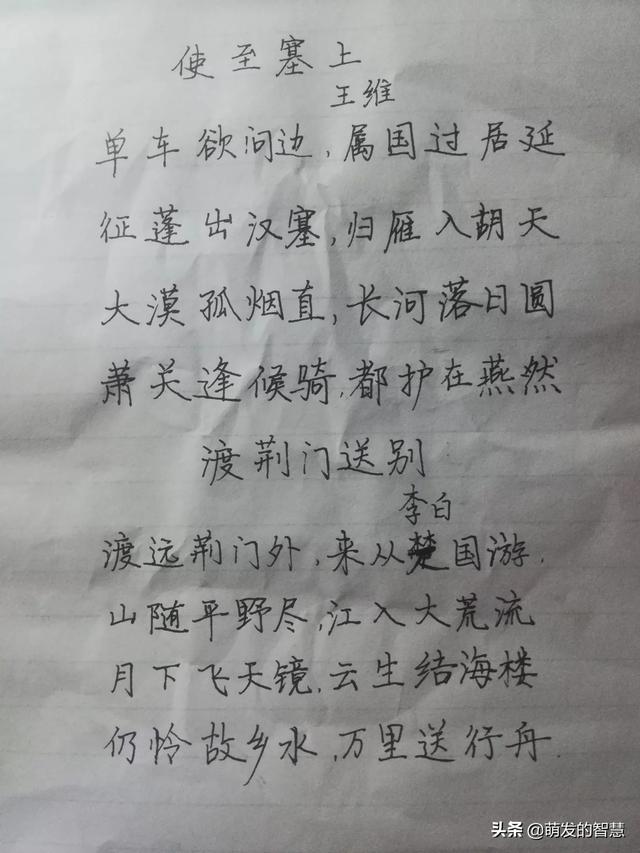 使至塞上
王维
单车欲问边,属国过居延
征蓬出汉塞,归雁入胡天
大漠孤烟直,长河落日圆
萧关逢候骑,都护在燕然
渡荆门送别
李白
渡远荆门外,来从楚国游.
山随平野尽,江入大荒流
月下飞天镜,云生结海楼
仍怜故乡水,万里送行舟.
头条 @萌发的智慧